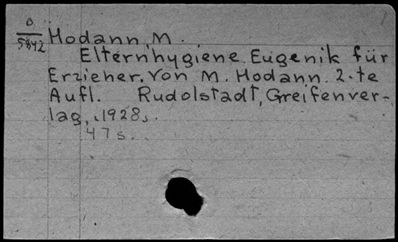 O
5842
Hodann, M.
Elternhygiene. Eugenik für
Erzieher. Von M. Hodann. 2-te
Aufl. Rudolstadt, Greifenver-
lag, 1928.
47 s.